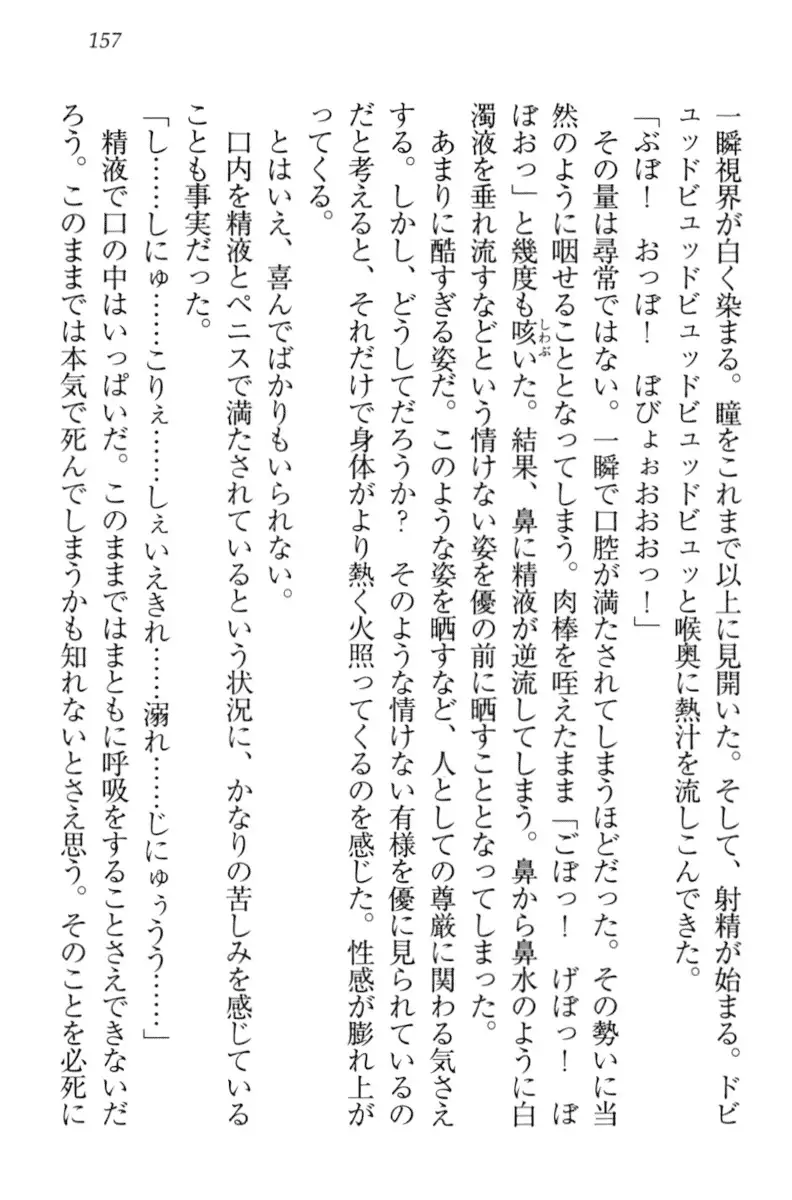 157
一瞬視界が白く染まる。瞳をこれまで以上に見開いた。そして、射精が始まる。ドビ
ュッドビュッドビュッドビュッと喉奥に熱汁を流しこんできた。
「ぶぼ！　おっぼ！　ぼびょぉおおおっ！」
その量は尋常ではない。一瞬で口腔が満たされてしまうほどだった。その勢いに当
然のように咽せることとなってしまう。肉棒を咥えたまま「ごぼっ！　げぼっ！　ぼ
ぼおっ」と幾度も咳いた。結果、鼻に精液が逆流してしまう。鼻から鼻水のように白
しわぶ
濁液を垂れ流すなどという情けない姿を優の前に晒すこととなってしまった。
あまりに酷すぎる姿だ。このような姿を晒すなど、人としての尊厳に関わる気さえ
する。しかし、どうしてだろうか？　そのような情けない有様を優に見られているの
だと考えると、それだけで身体がより熱く火照ってくるのを感じた。性感が膨れ上が
ってくる。
とはいえ、喜んでばかりもいられない。
口内を精液とペニスで満たされているという状況に、かなりの苦しみを感じている
ことも事実だった。
「し……しにゅ……こりぇ……しぇいえきれ……溺れ……じにゅぅうう……」
精液で口の中はいっぱいだ。このままではまともに呼吸をすることさえできないだ
ろう。このままでは本気で死んでしまうかも知れないとさえ思う。そのことを必死に